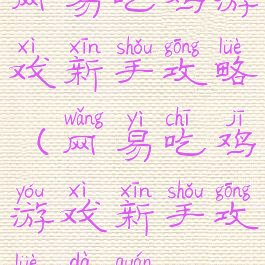 网易吃鸡游
xì xīn shǒu gōng lüè
戏新手攻略
wǎng yì chī jī
（网易吃鸡
yóu xì xīn shǒu gōng
游戏新手攻
lüè dà quán